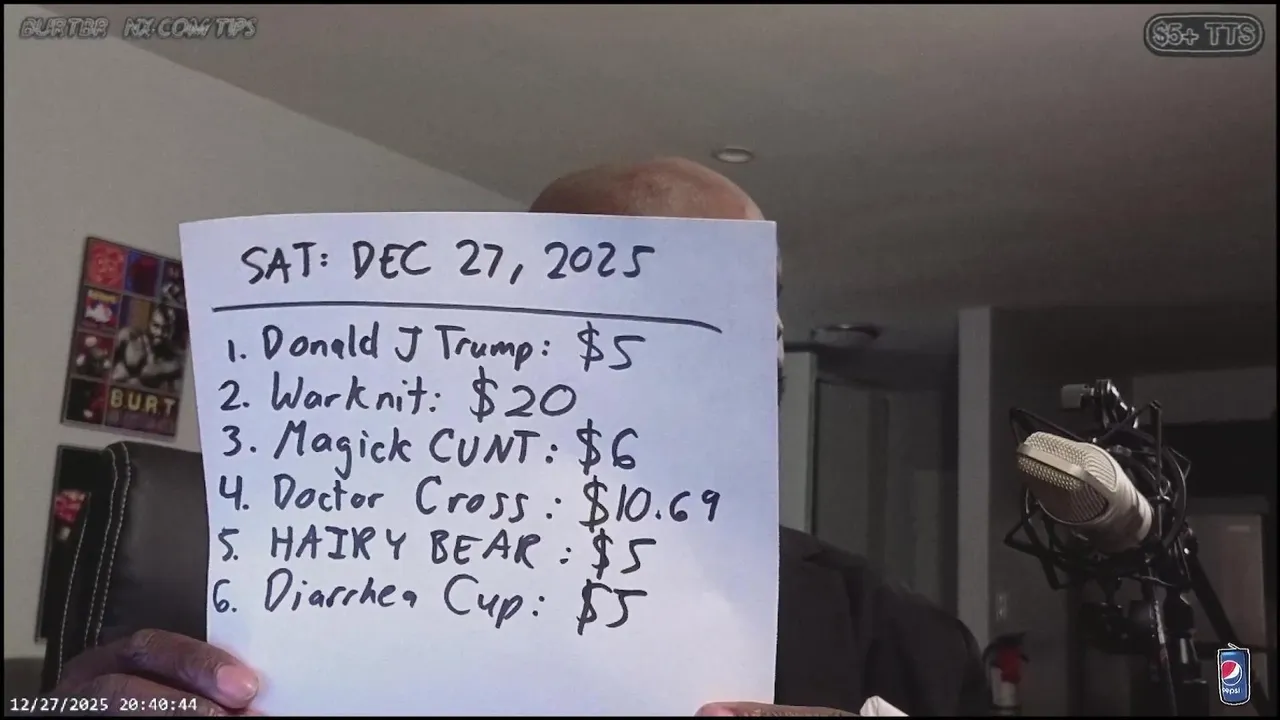 BURTBR NX.COM/TIPS
$5+ TTS
SAT: DEC 27, 2025
1. Donald J Trump: $5
2. Warknit: $20
3. Magick CUNT: $6
4. Doctor Cross: $10.69
5. HAIRY BEAR: $5
6. Diarrhea Cup: $5
BURT
pepsi
12/27/2025 20:40:44